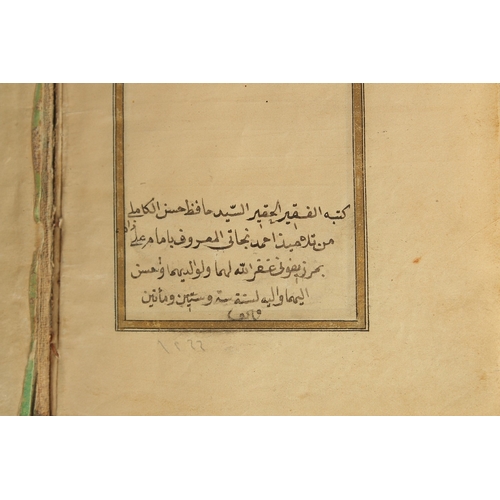 كتبه الفقير الحقير السيد حافظ حسن الكاملي
من تلاميذ احمد نجاتي المعروف بامام علي زاده
غفر الله لهما ولوالديهما واحسن
اليهما واليه لسنة ستة وستين ومأتين
والف
١٢٦٦